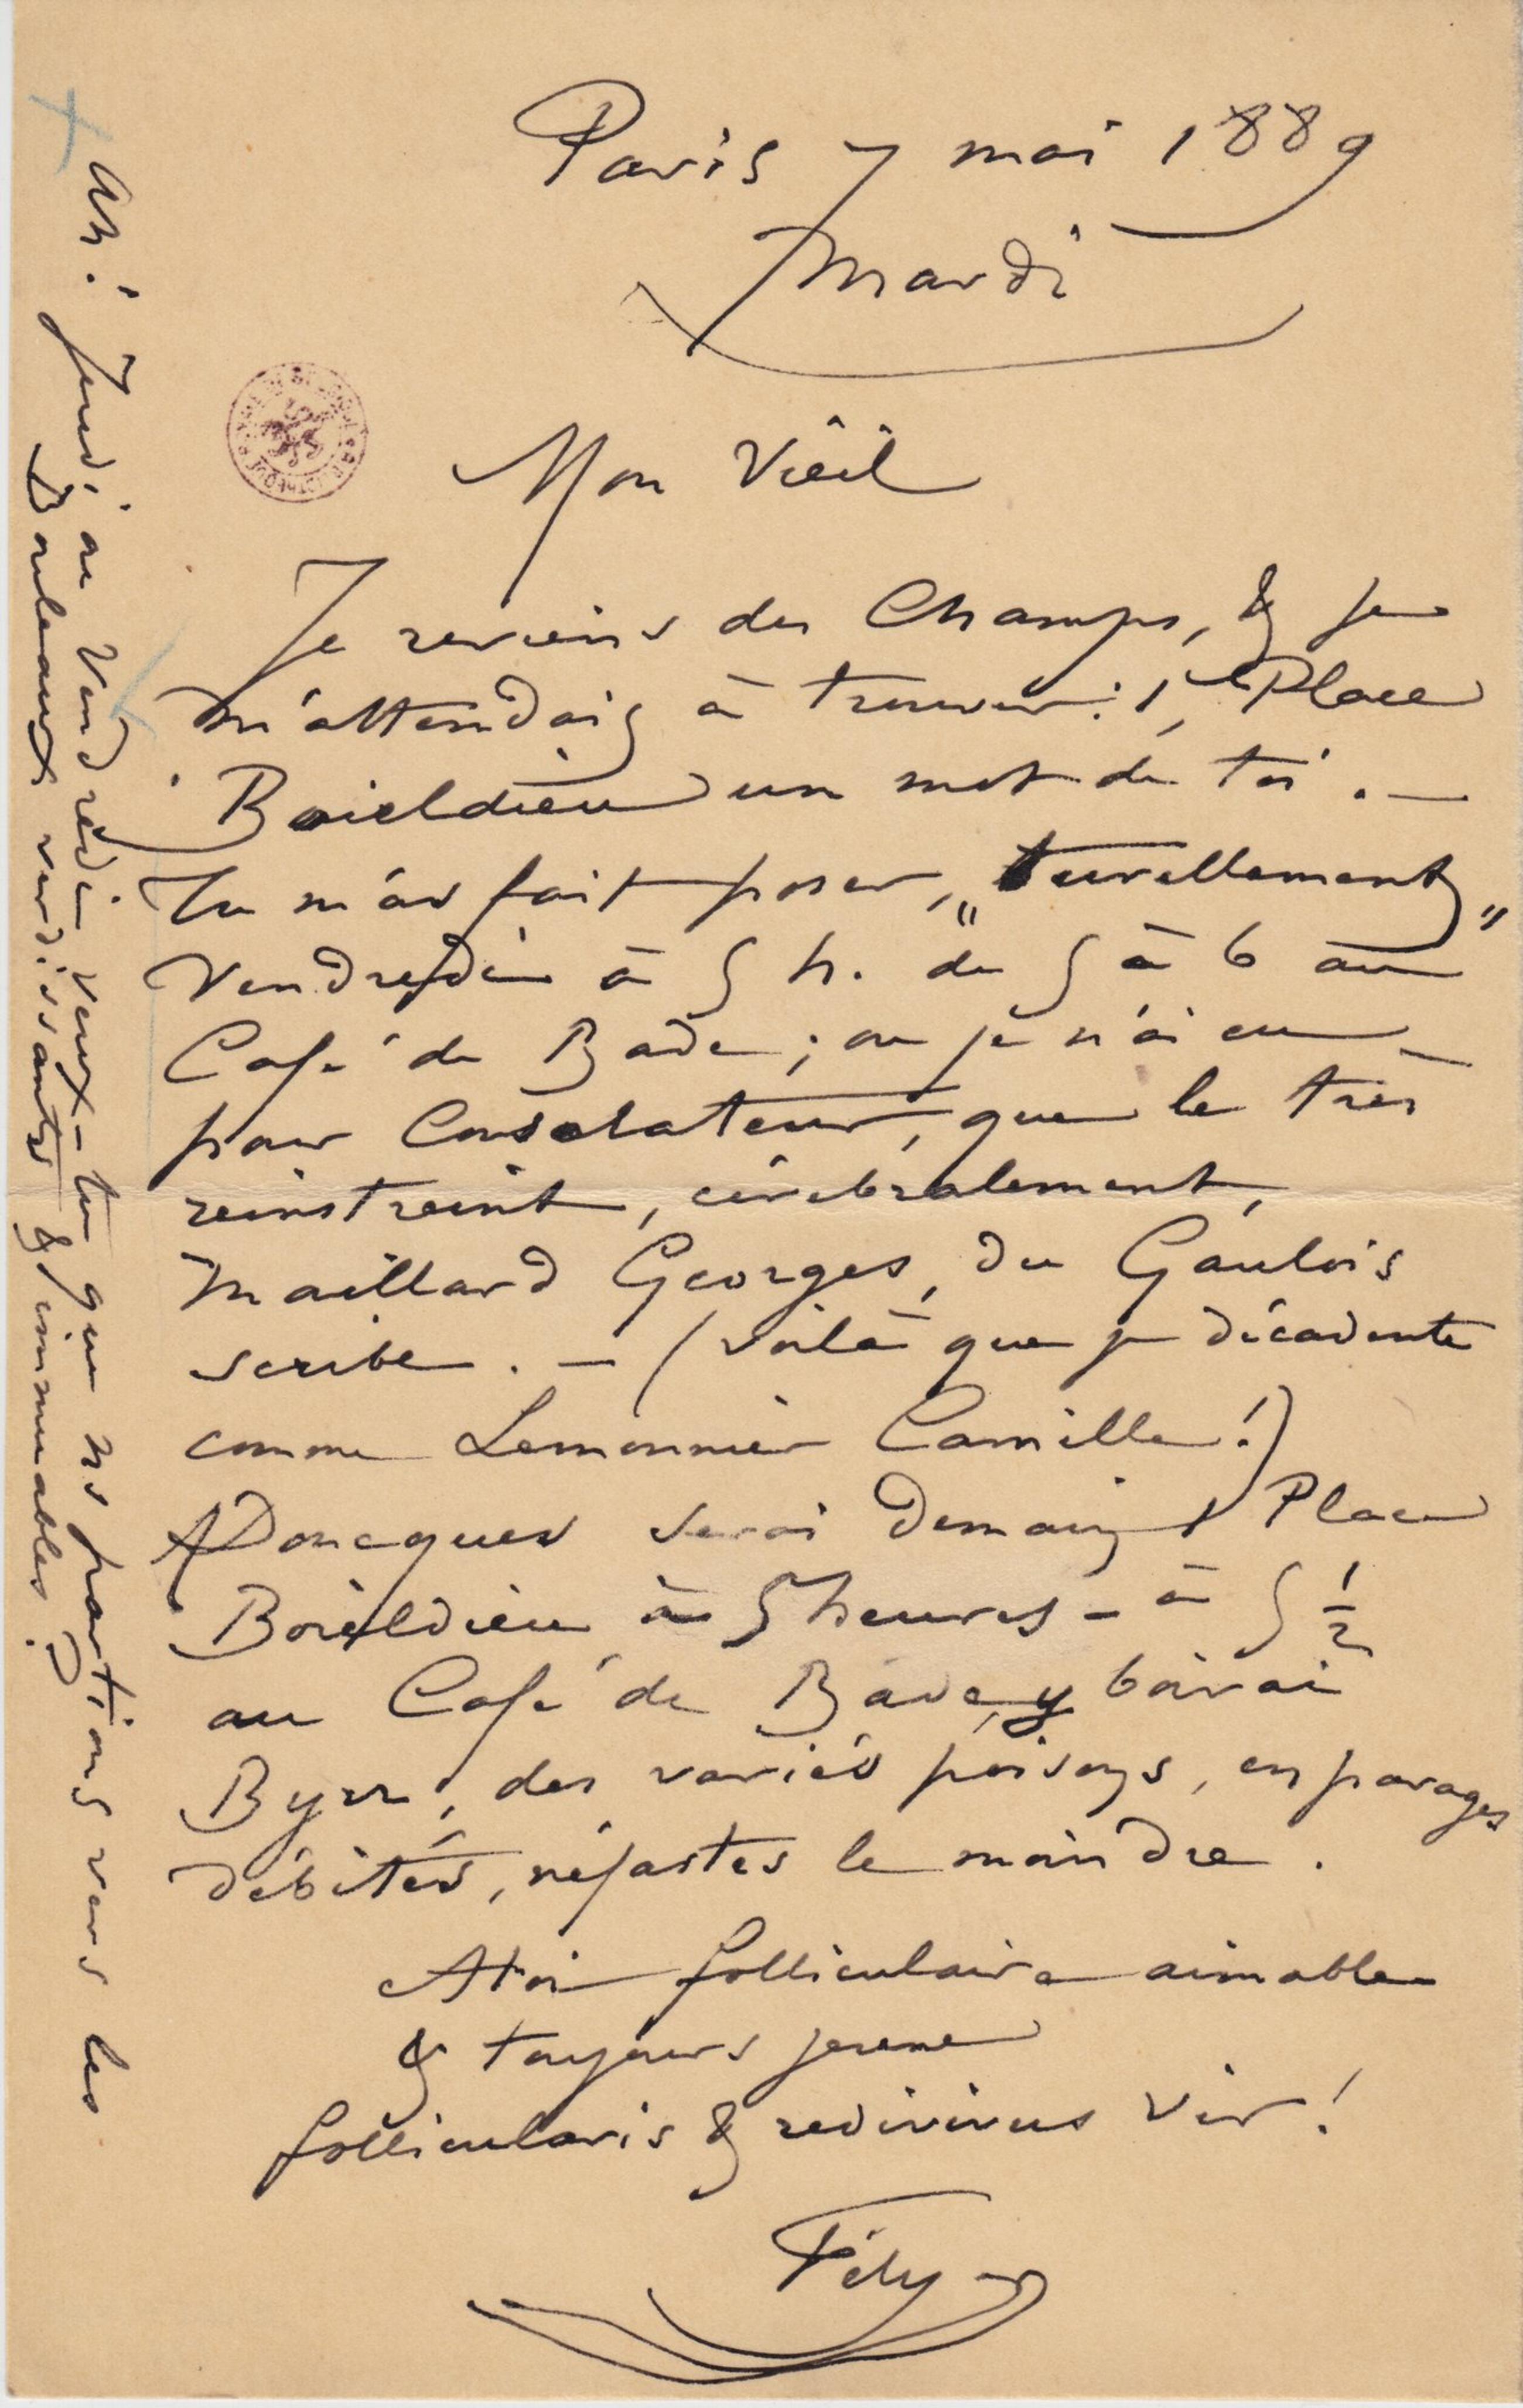 Paris 7 mai 1889
Mardi
Mon Vieil
Je reviens des Champs, & je
m'attendais à trouver : 1, Place
Boieldieu un mot de toi. —
Tu m'as fait poser, „turellement„
Vendredi à 5 h. de 5 à 6 au
Café de Bade ; ou je n'ai eu
pour Consolateur, que le très
reinstreint, cérébralement,
Maillard Georges, du Gaulois
scribe. — (voilà que je décadente
comme Lemonnier Camille !)
Doncques serai demain 1 Place
Boieldieu à 5 heures – à 5 1/2
au Café de Bade, y boirai
Byrr, des variés poisons, en parages
débités, néfastes le moindre.
A toi folliculaire aimable
& toujours jeune
follicularis & redivivus vir !
Fély
Ah ! Jeudi ou Vendredi veux-tu que ns partions vers les
Bouleaux verdissants & immuables ?